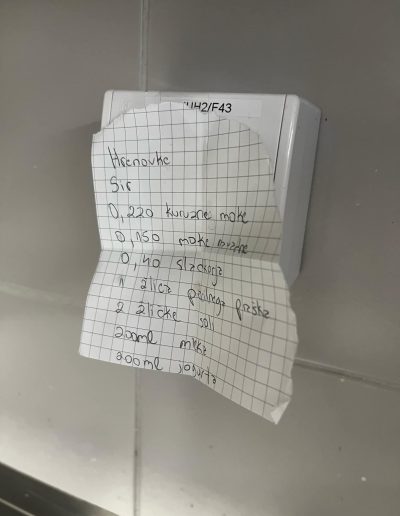 UH2/F43
Hrenovke
Sir
0,220 koruzne moke
0,150 moke
0,40 sladkorja
1 žlica pecilnega praška
2 žličke soli
200ml mleka
200ml jogurta